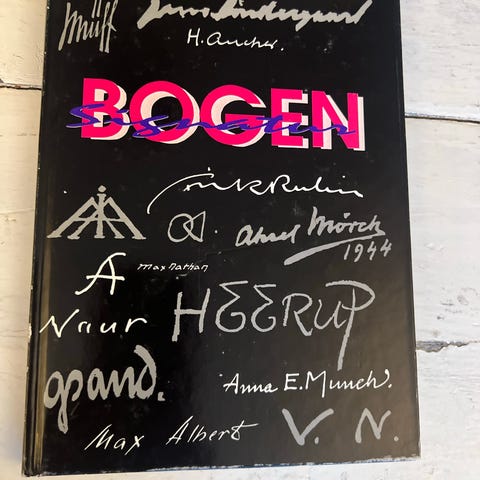 Müff
Jens Søndergaard
H. Ancher.
Signatur
BOGEN
Axel Mörch
1944
A
Max Nathan
Naur
HEERUP
Anna E. Munch.
Max Albert
V. N.